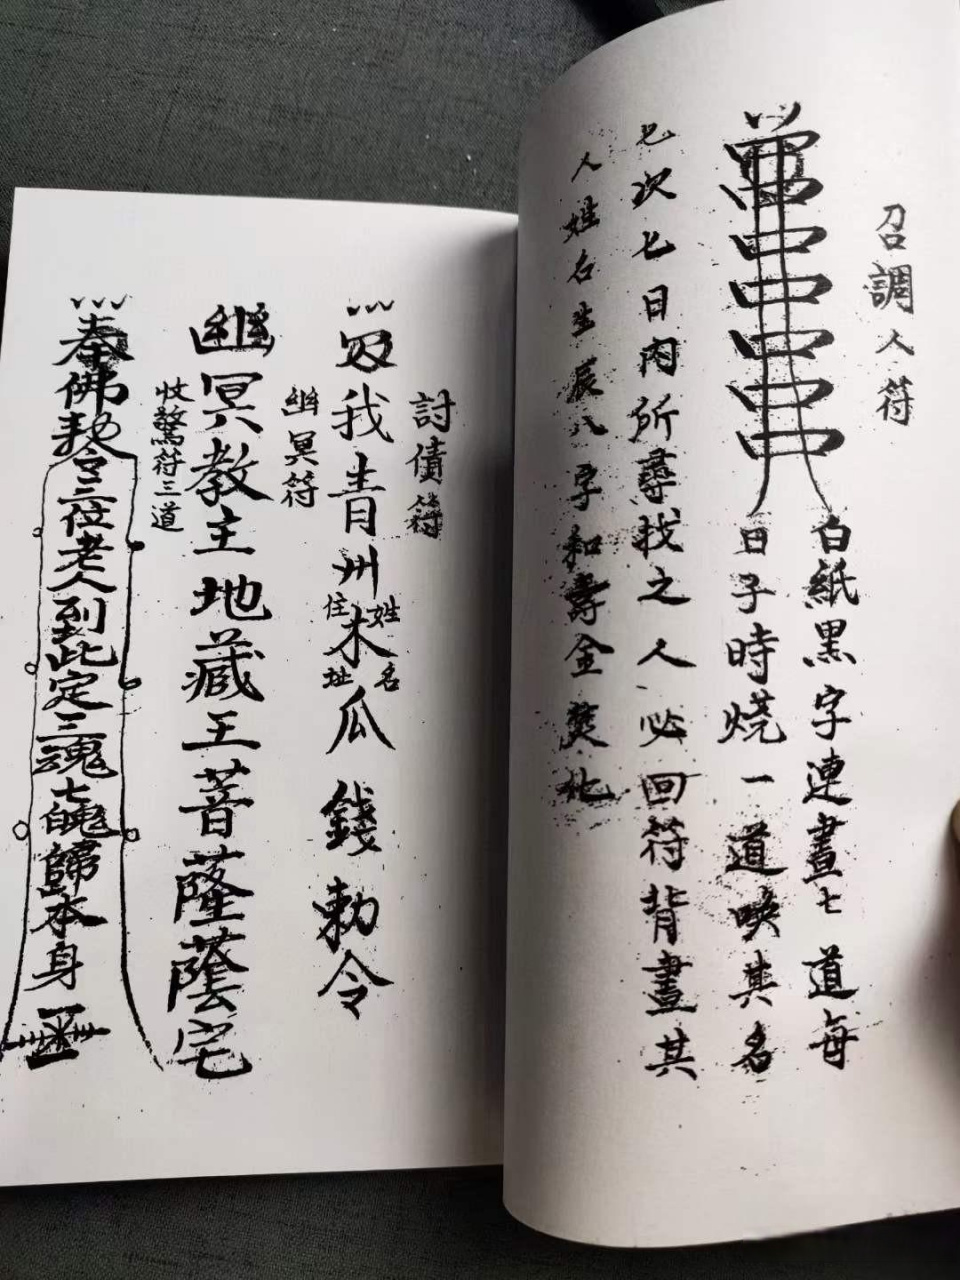 召調人符
白紙黑字連畫七道每
日子時燒一道喚其名
七次七日內所尋找之人必回符背畫其
人姓名生辰八字和壽金焚化
討債符
我青州木瓜錢勅令
姓名
住址
幽冥符
幽冥教主地藏王菩薩蔭宅
收驚符三道
奉佛勅令三位老人到此定三魂七魄歸本身